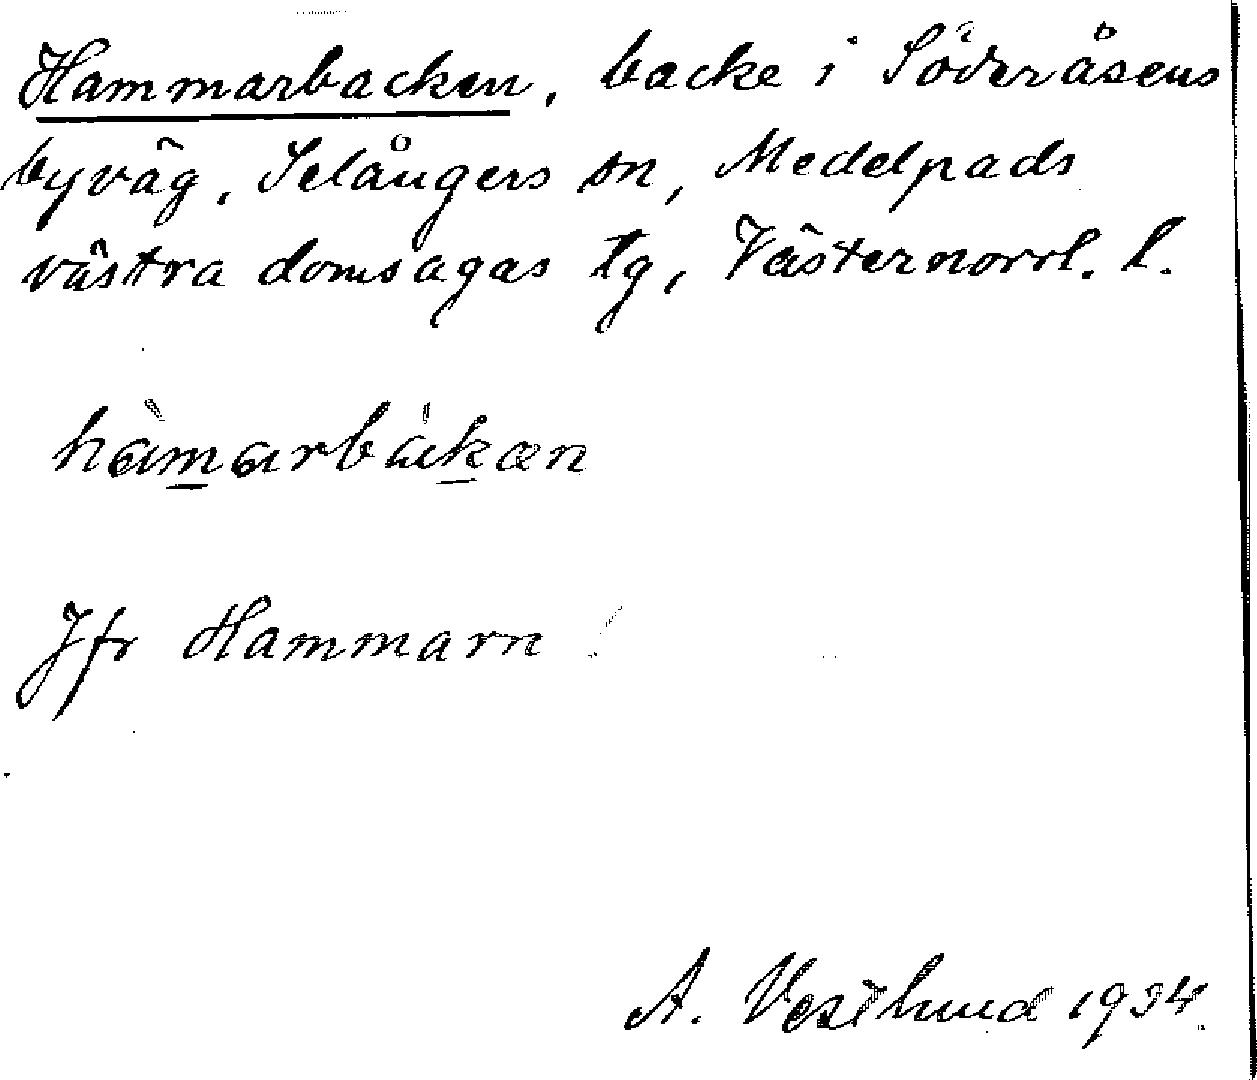 Hammarbacken, backe i Söderåsens
byväg, Selångers sn, Medelpads
västra domsagas tg, Västernorrl. l.
hàmarbàkæn
Jfr Hammarn
A. Vestlund 1934